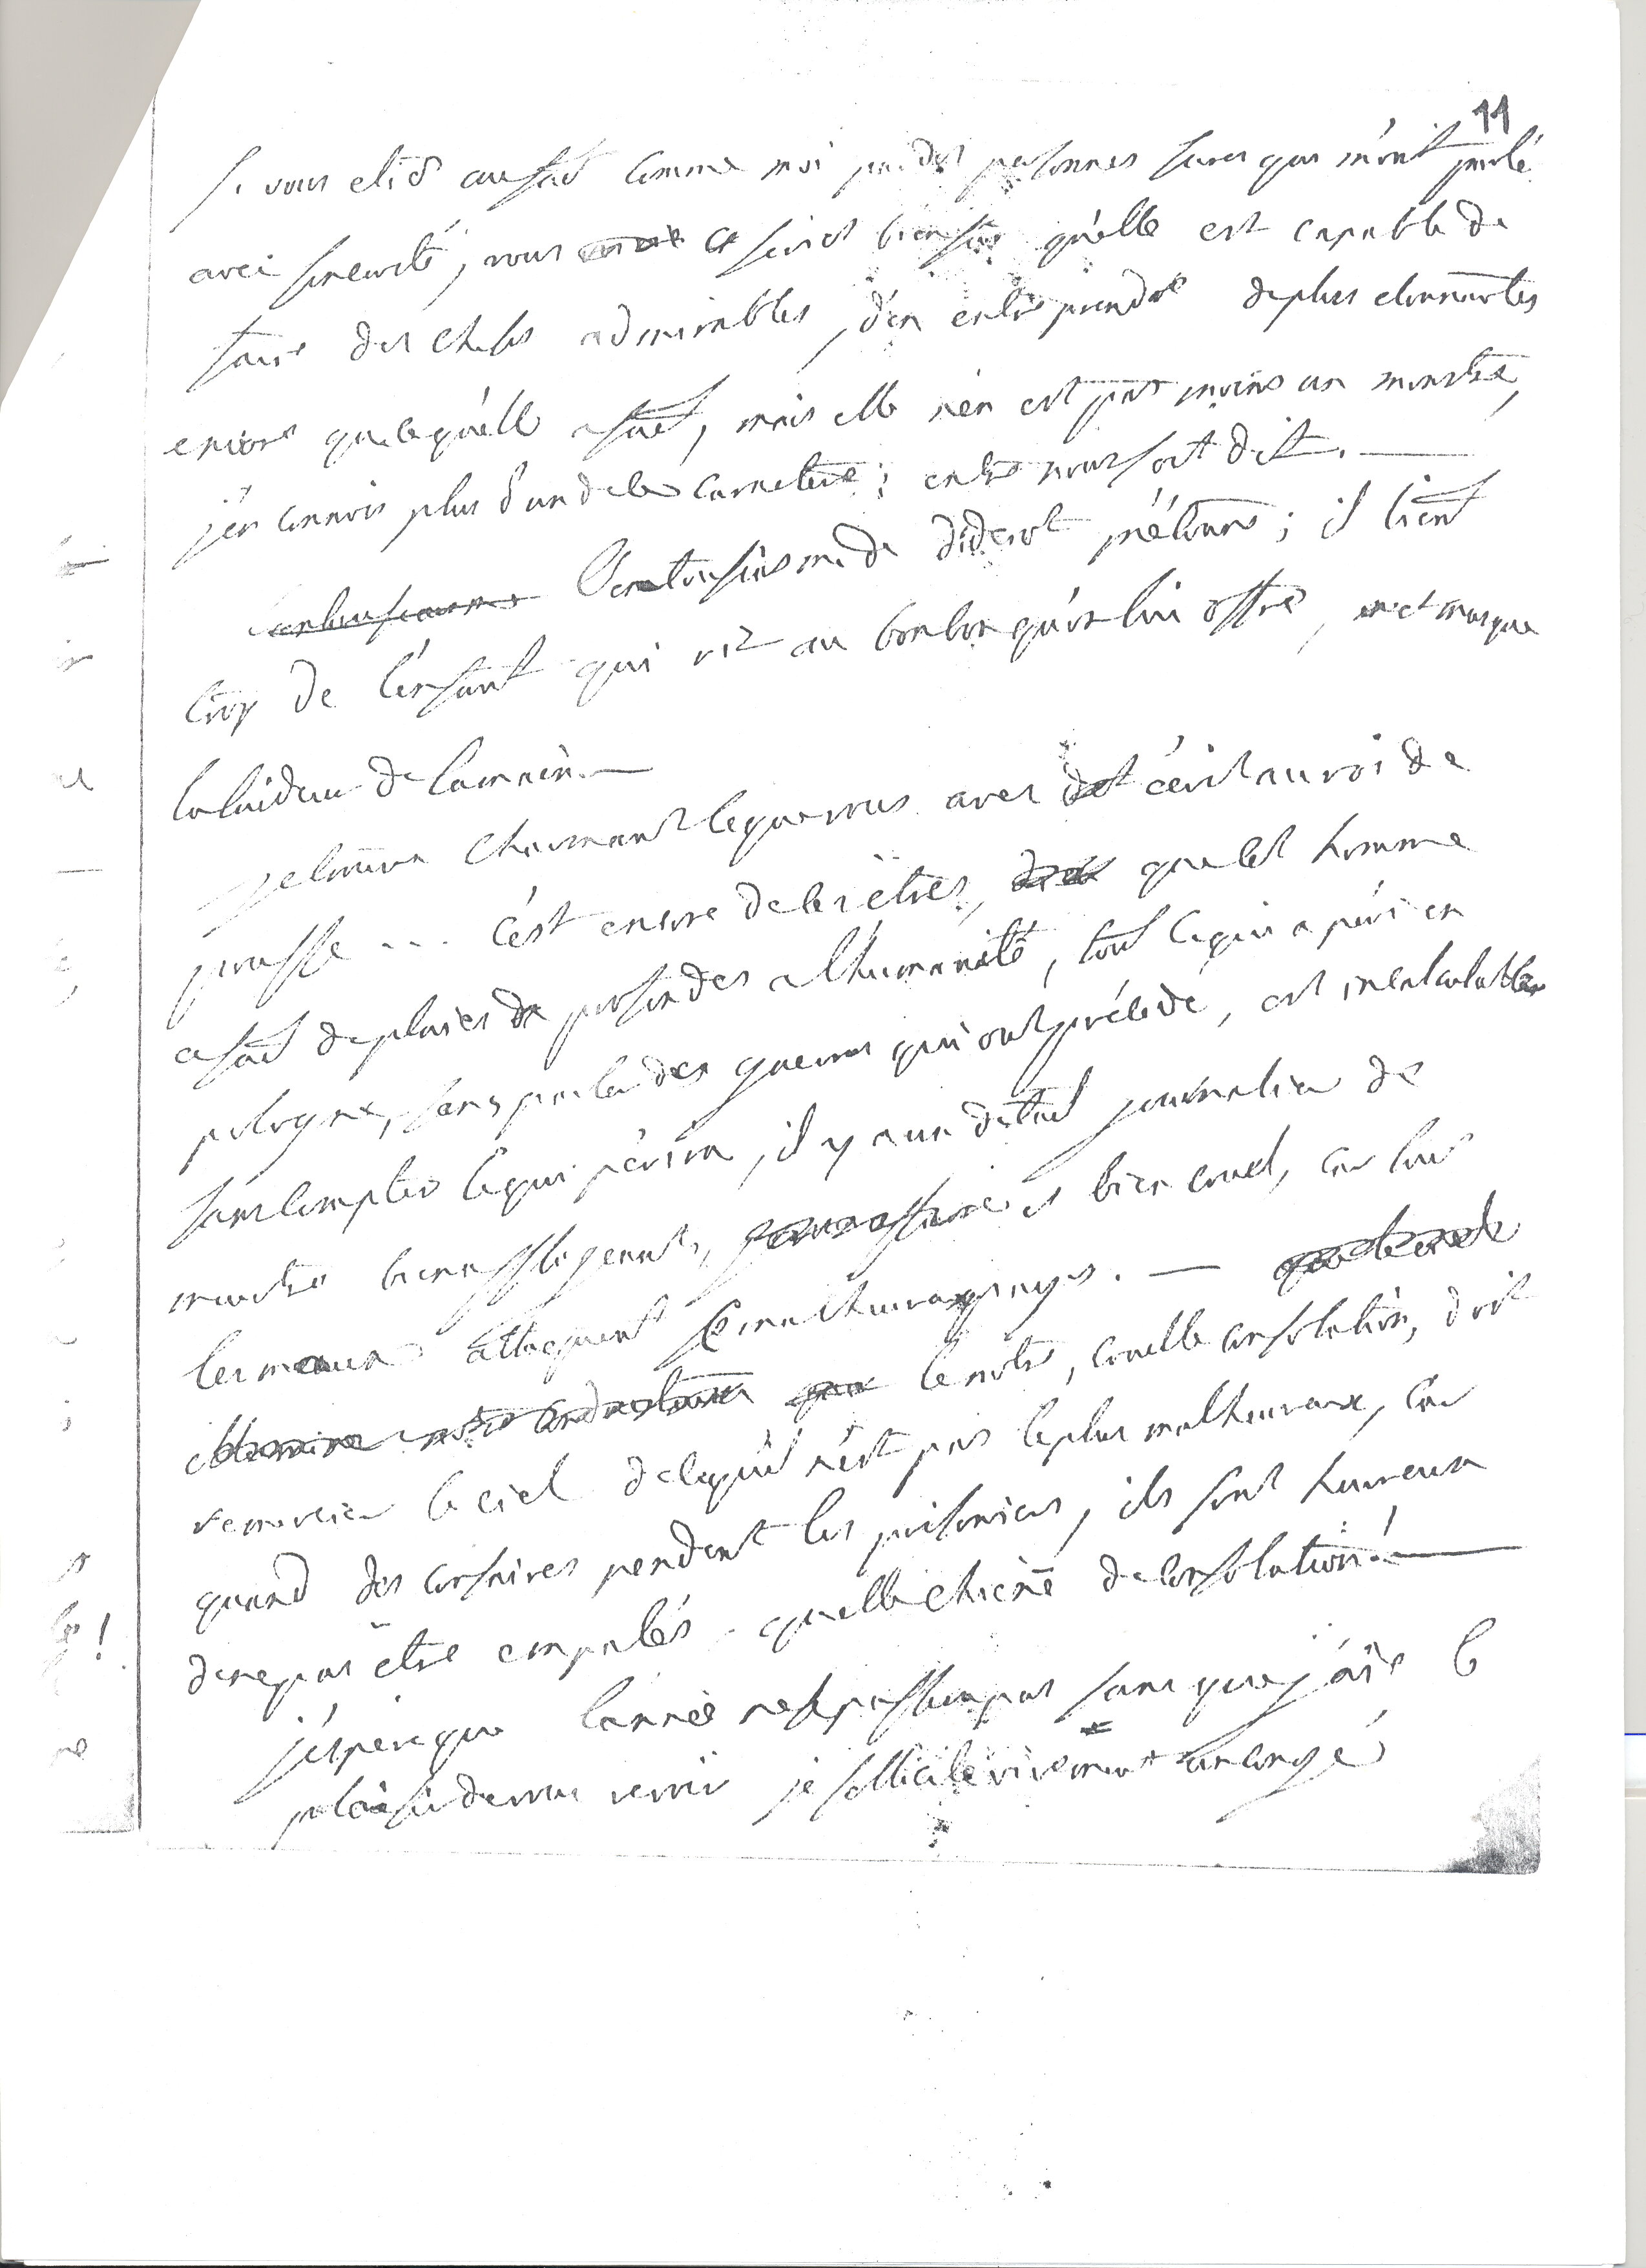 11
si vous etiés aufait comme moi par des personnes sures qui m'ont parlé
avec sincerité, vous seriés bien sûr qu'elle est capable de
faire des choses admirables, d'en entreprendre deplus etonnantes
encore que ce qu'elle a fait, mais elle n'en est pas moins un monstre,
j'en connois plus d'un de ce caractere; entre nous soit dit. —
l'entousiasme l'entousiasme de diderot m'étonne; il tient
trop de l'enfant qui rit au bonbon qu'on lui offre, et masque
la laideur de la main. —
je trouve charmant ce que vous avez dit écrit au roi de
prusse ... c'est encore de ces êtres, que cet homme
a fait de plaies profondes a l'humanité, tout ce qui a péri en
pologne, sans parler des guerres qui ont précédé, est incalculable
sans compter ce qui périra, il y a un détail journalier de
meurtre bien affligeant, et bien cruel, car tous
les maux attaquent ce malheureux pays. —
le notre, cruelle consolation, doit
remercier le ciel de ce qu'il n'est pas le plus malheureux, car
quand des corsaires pendent les prisoniers, ils sont heureux
de ne pas être empalés. quelle chiene de consolation! —
j'espere que l'année ne se passera pas sans que j'aïe le
plaisir de vous revoir je sollicite vivement un congé